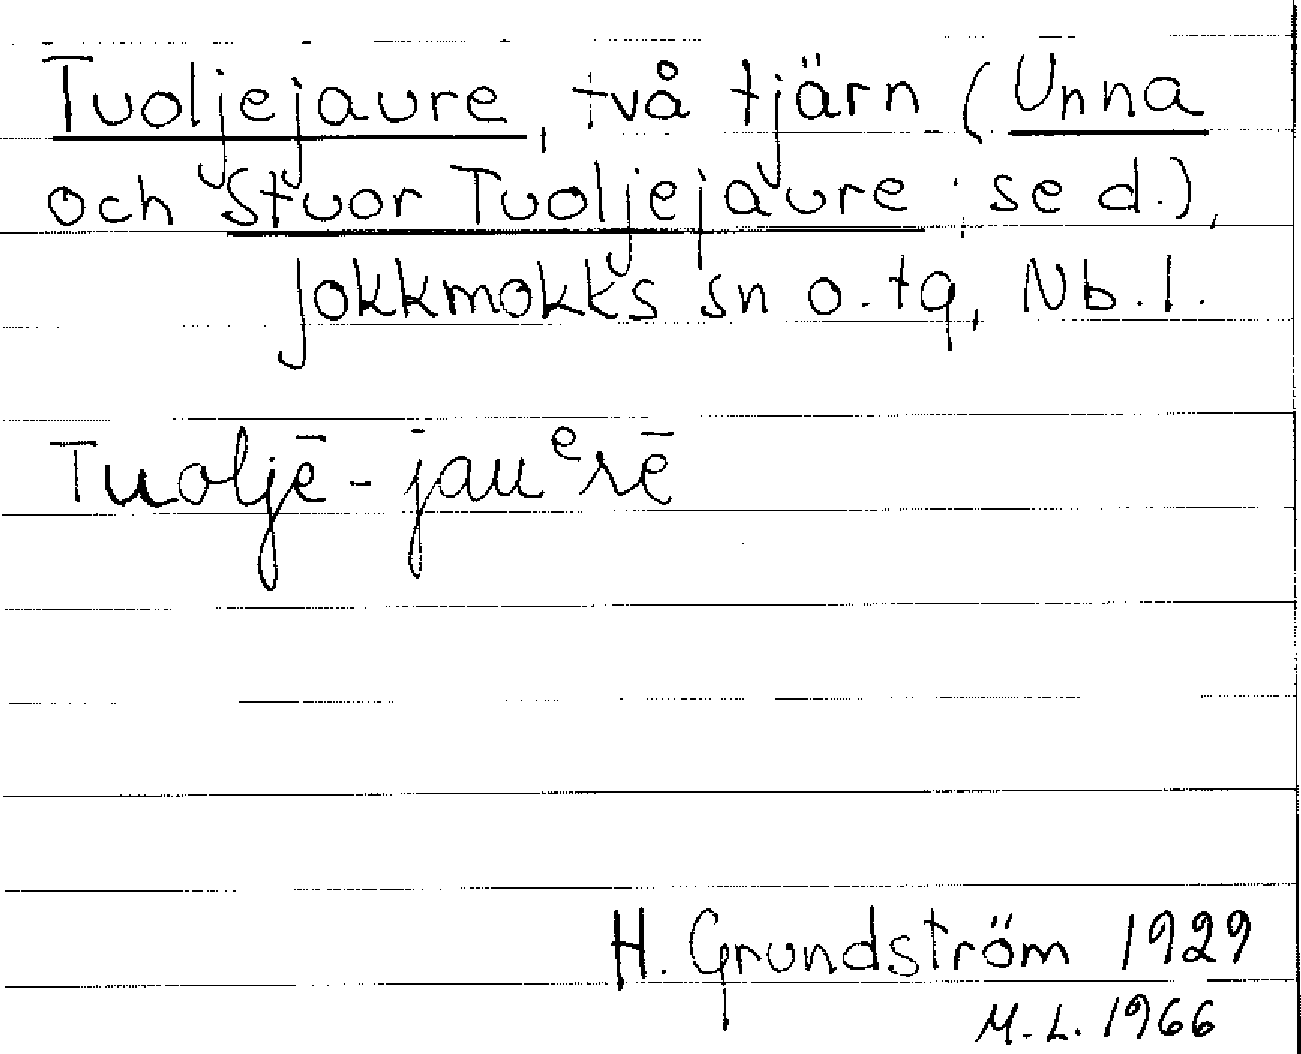 Tuoljejaure, två tjärn (Unna
och Stuor Tuoljejaure; se d.),
Jokkmokks sn o. tg, Nb. l.
Tuoljē-jauᵉrē
H. Grundström 1929
M.L. 1966